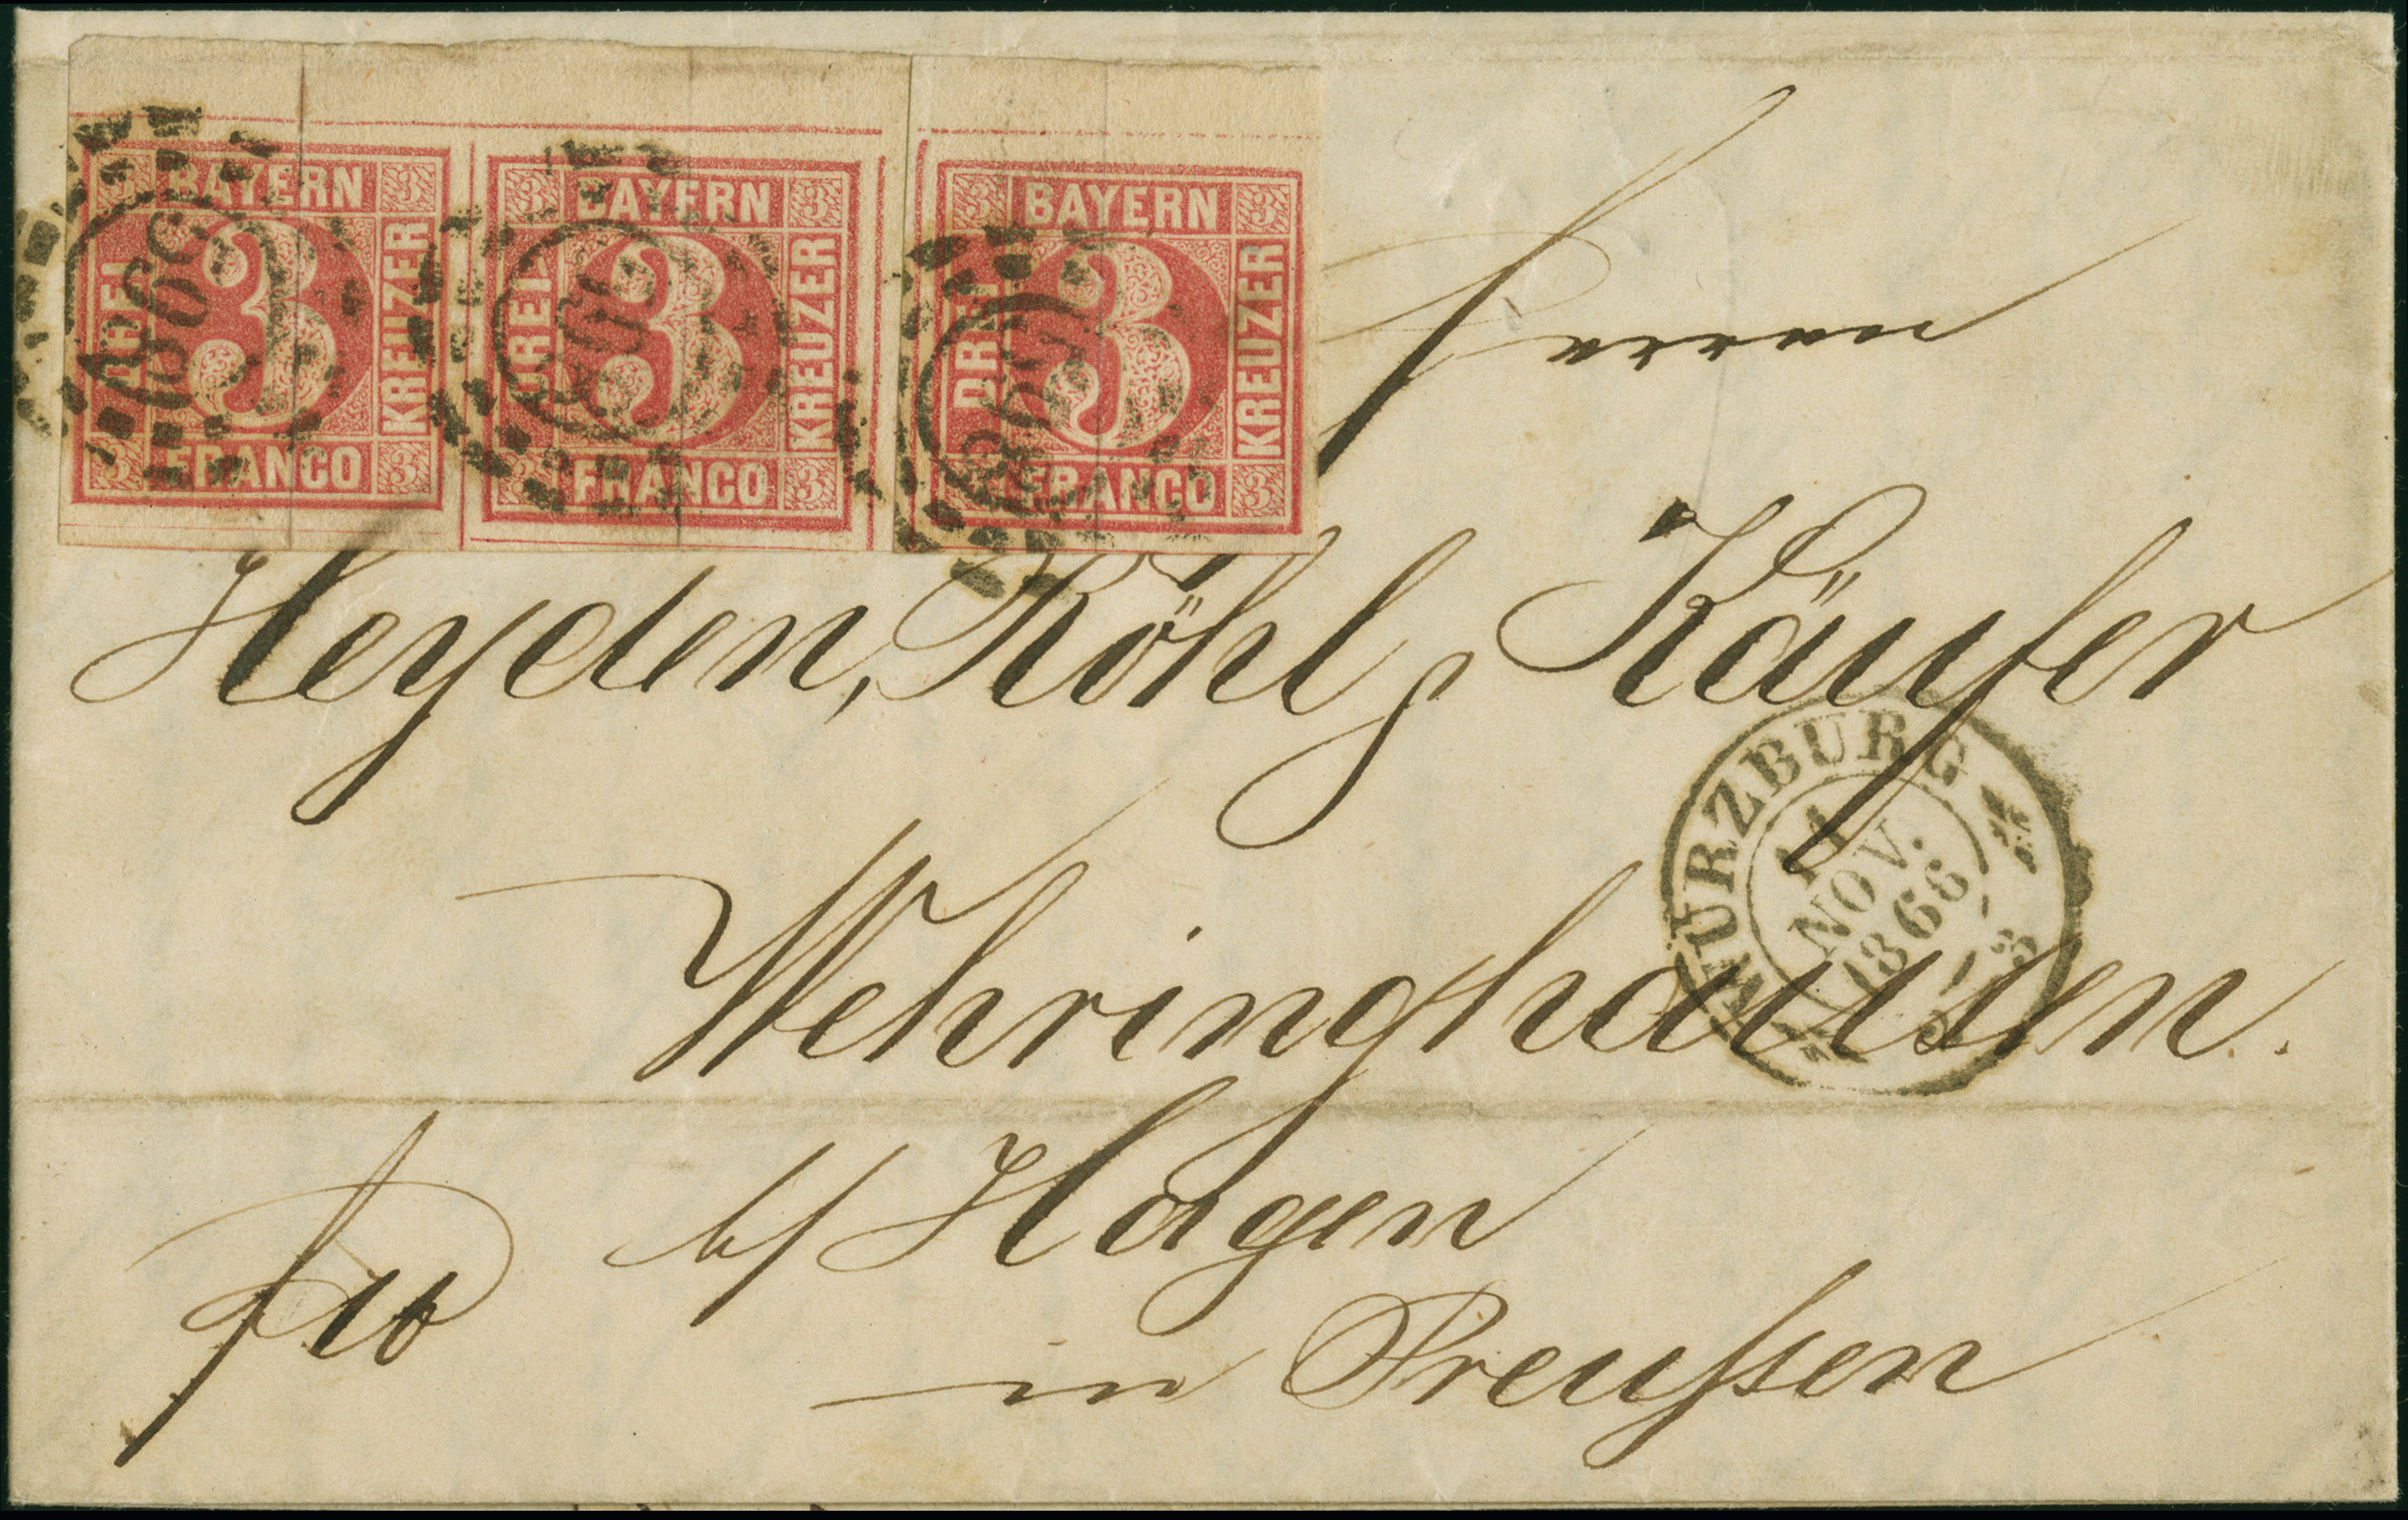 3 BAYERN 3
DREI 3 KREUZER
3 FRANCO 3
3 BAYERN 3
DREI 3 KREUZER
3 FRANCO 3
3 BAYERN 3
DREI 3 KREUZER
3 FRANCO 3
Herren
Heyden, Röhl & Käufer
WÜRZBURG
11
NOV.
1866
Wehringhausen.
b/ Hagen
in Preußen